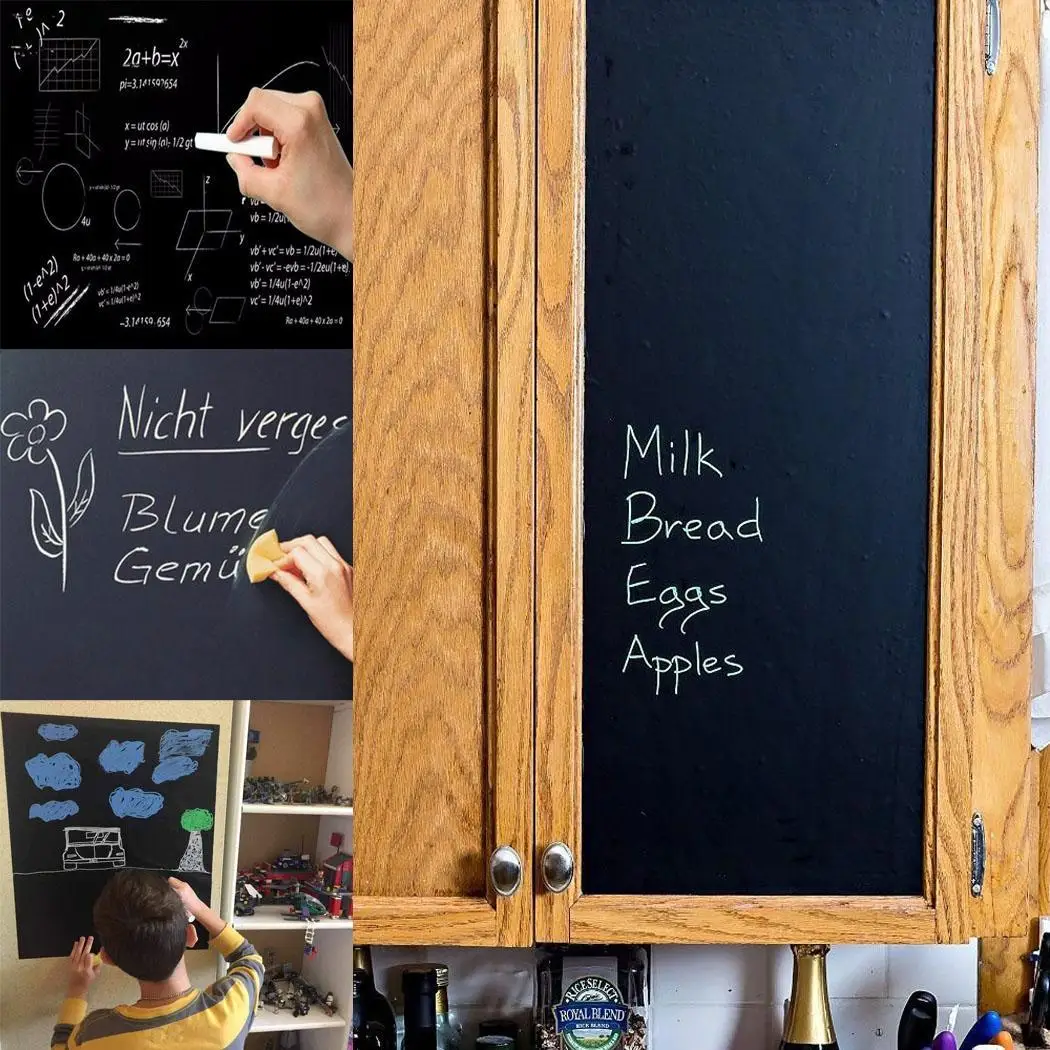 2a+b=x^2x
pi=3.141592654
x = ut cos (a)
y = ut sin (a)- 1/2 gt
z
4u
y
x
vb = 1/2u(
Ra + 40a + 40 x 2a = 0
vb' + vc' = vb = 1/2u(1+e)
vb' - vc' = -evb = -1/2eu(1+e)
vb' = 1/4u(1-e^2)
vc' = 1/4u(1+e)^2
(1-e^2)
(1+e)^2
vb' = 1/4u(1-e^2)
vc' = 1/4u(1+e)^2
Ra + 40a + 40 x 2a = 0
Nicht verges
Blume
Gemü
Milk
Bread
Eggs
Apples
RICESELECT
ROYAL BLEND
RICE BLEND